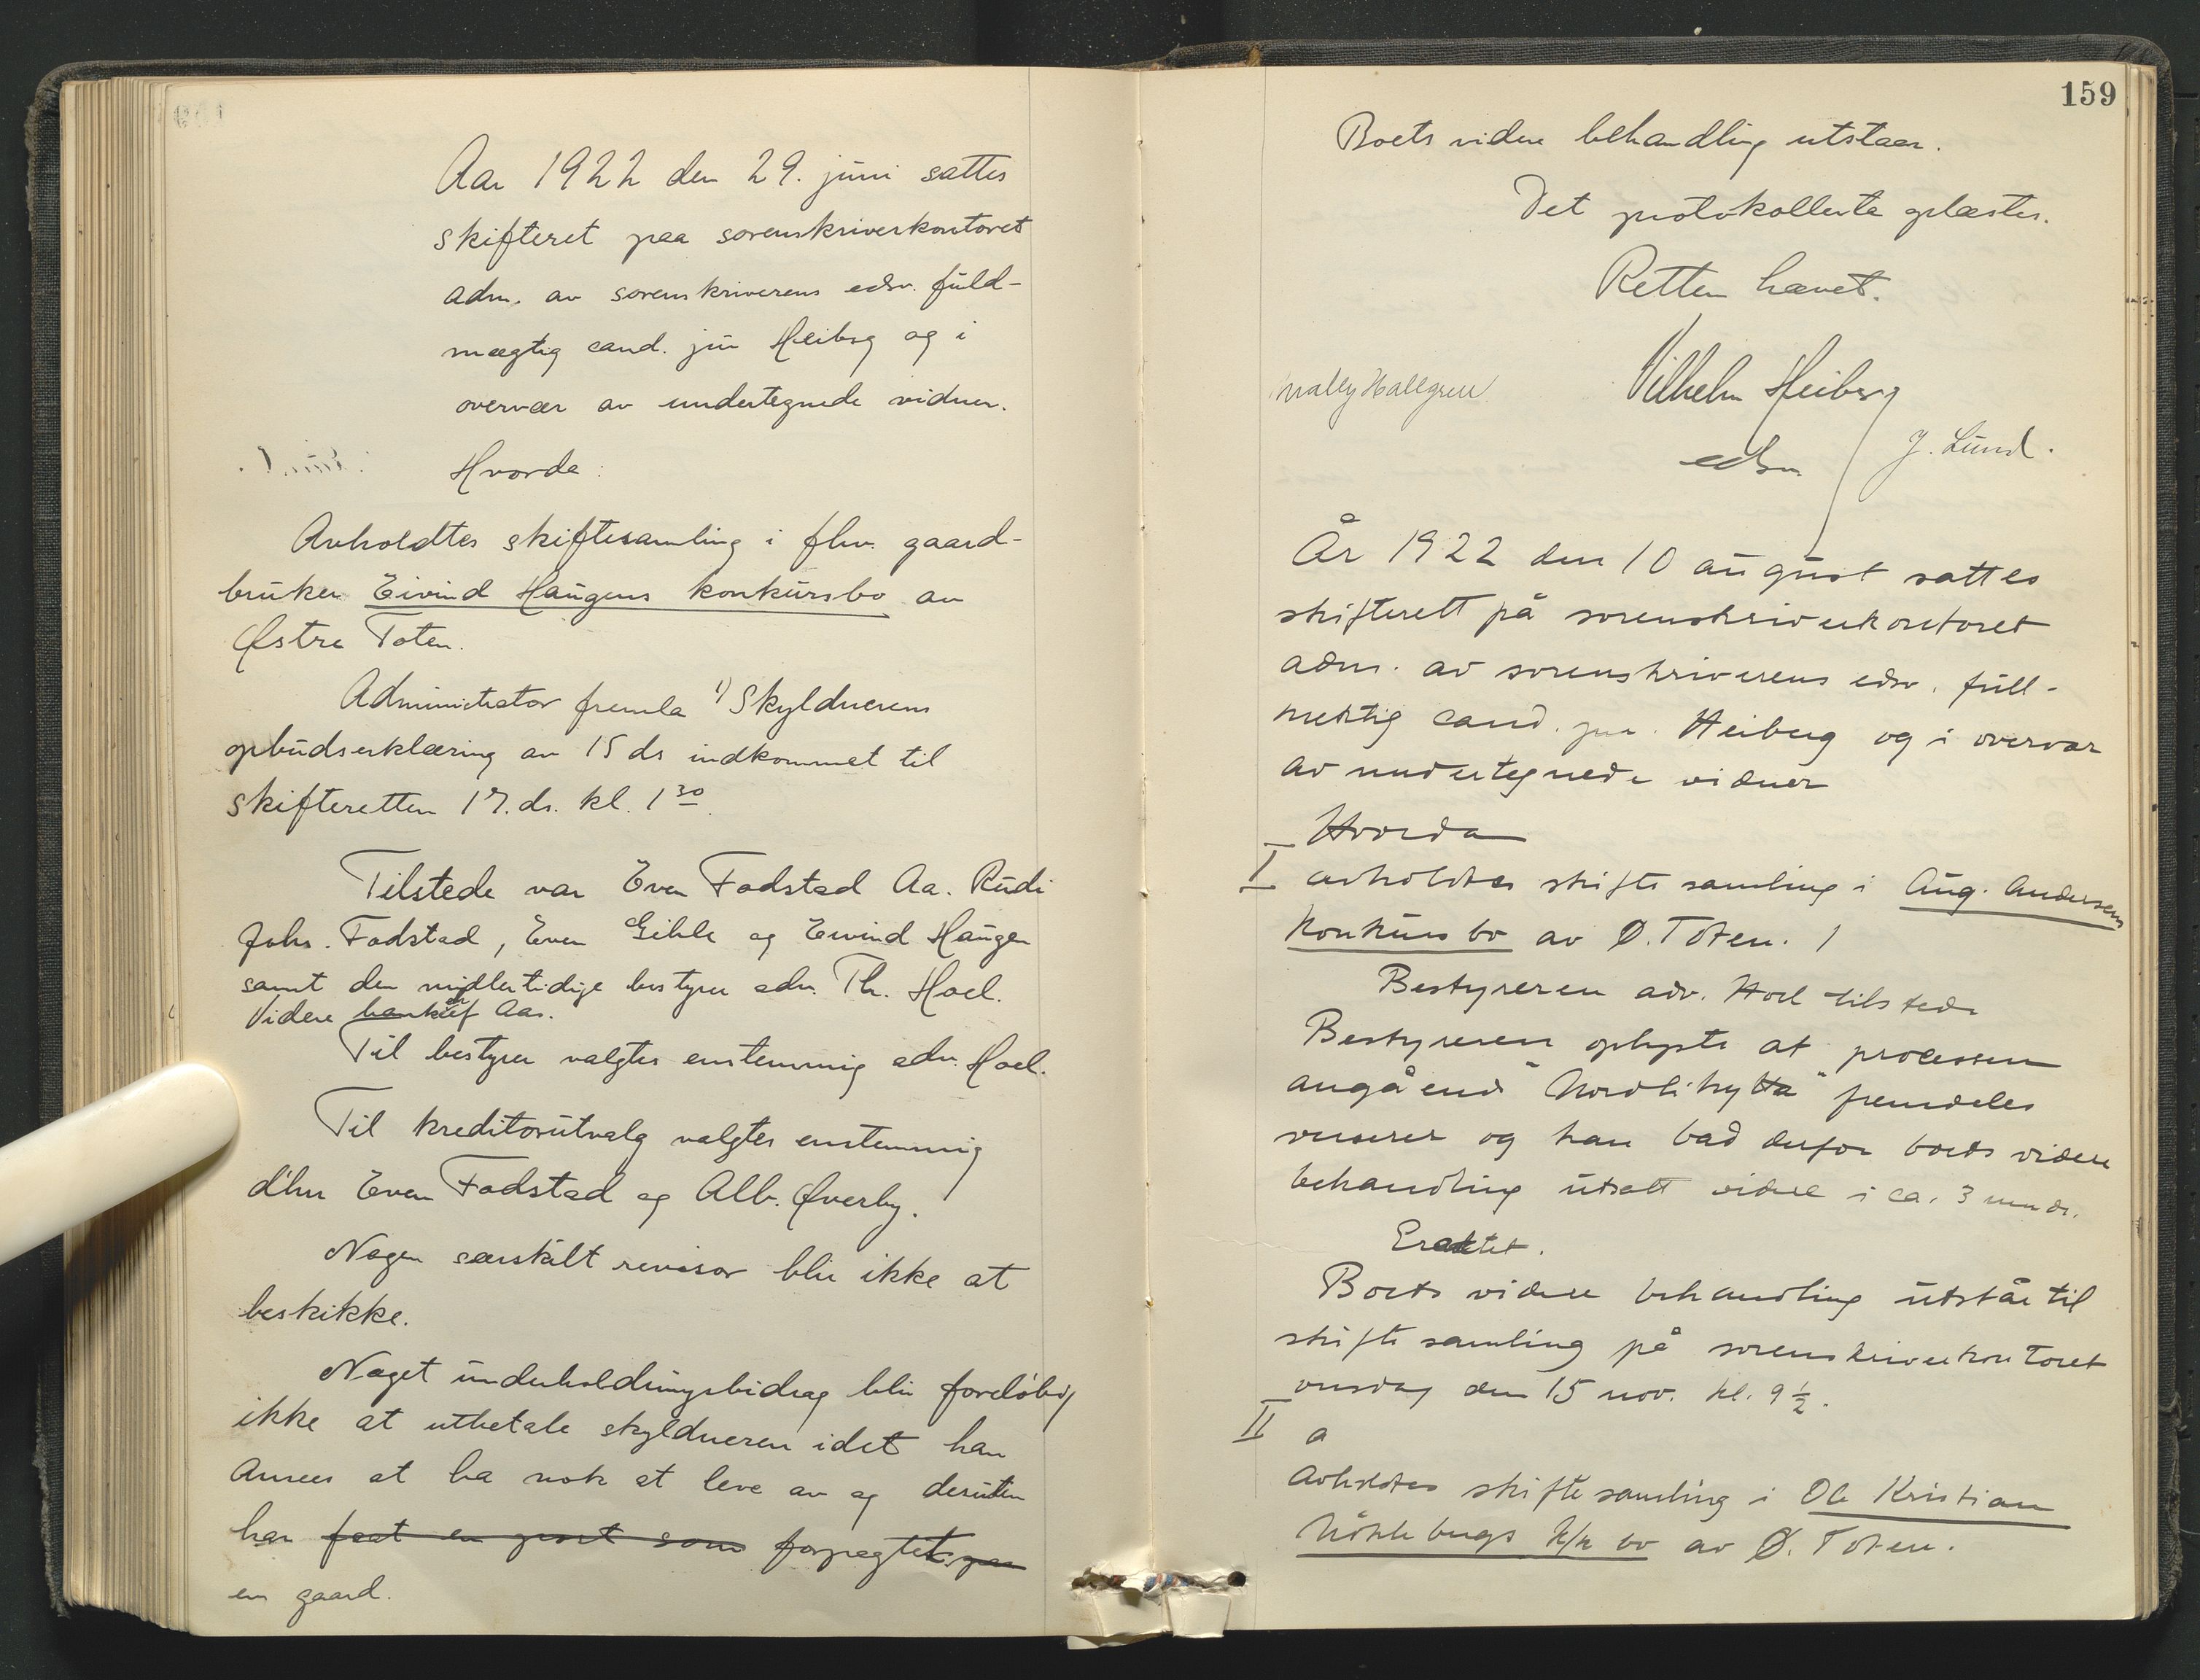 Aar 1922 den 29. juni sattes
skifteret paa sorenskriverkontoret
adm. av sorenskriverens edsv. fuld-
mægtig cand. jur Heiberg og i
overvær av undertegnede vidner.
Hvorda:
Avholdtes skiftesamling i fhv. gaard-
bruker Eivind Haugens konkursbo av
Østre Toten.
Administrator fremla 1) Skyldnerens
opbudserklæring av 15 ds indkommet til
skifteretten 17. ds. kl. 1 30.
Tilstede var Even Fodstad Aa. Rudi
Johs. Fodstad, Even Gihle og Eivind Haugen
samt den midlertidige bestyrer adv. Th. Hoel.
Videre Aas.
Til bestyrer valgtes enstemmig adv. Hoel.
Til kreditorutvalg valgtes enstemmig
d'hrr Even Fodstad og Alb. Øverby.
Nogen særskilt revisor blir ikke at
beskikke.
Noget underholdningsbidrag blir foreløbig
ikke at utbetale skyldneren idet han
ansees at ha nok at leve av og desuten
har faat en post som forpagtet paa
en gaard.
159
Boets videre behandling utstaar.
Det protokollerte oplæstes.
Retten hævet.
Vilhelm Heiberg
Hallgren
edsv.
J. Lund.
År 1922 den 10 august sattes
skifterett på sorenskriverkontoret
adm. av sorenskriverens edsv. full-
mektig cand. jur. Heiberg og i overvær
av undertegnede vidner
Hvorda
I avholdtes skiftesamling i Aug. Andersens
konkursbo av Ø. Toten.
Bestyreren adv. Hoel tilstede
Bestyreren oplyste at processen
angående "Nordlihytta" fremdeles
verserer og han bad derfor boets videre
behandling utsatt videre i ca. 3 mndr.
Eraktet.
Boets videre behandling utstår til
skiftesamling på sorenskriverkontoret
onsdag den 15 nov. kl. 9 ½.
II a
Avholdtes skiftesamling i Ole Kristian
Nøkkebergs k/k bo av Ø. Toten.